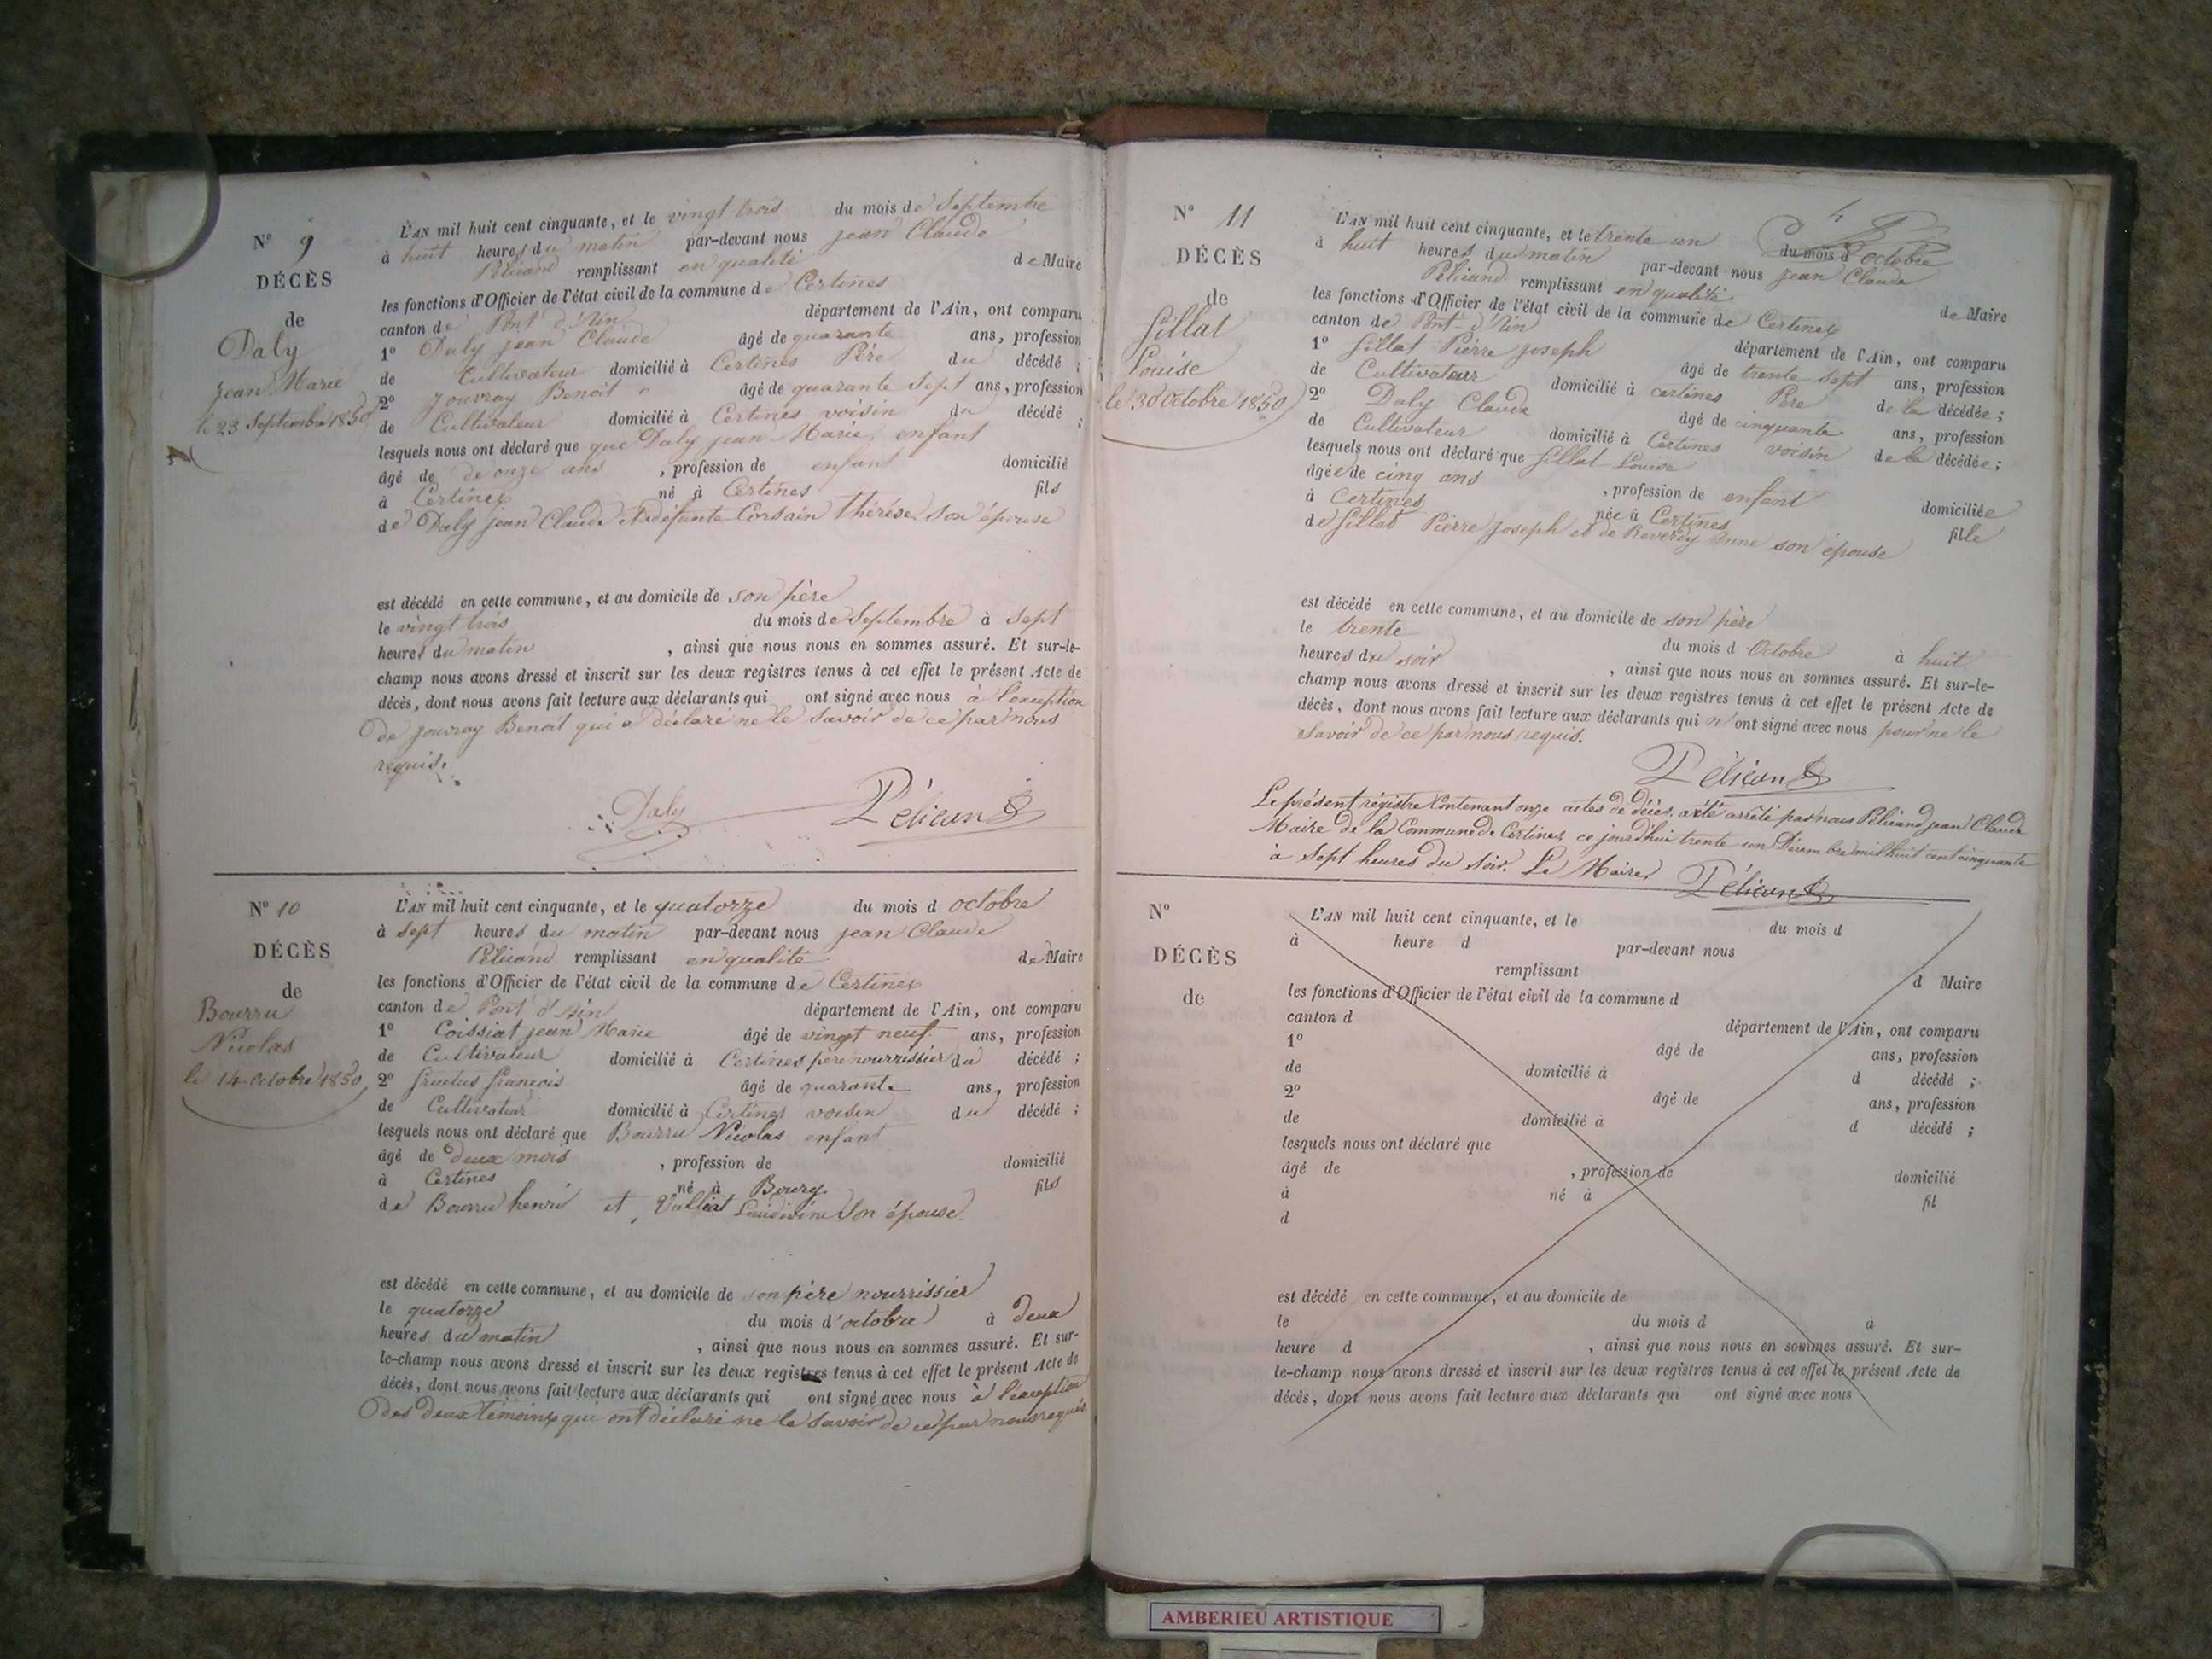 N° 9
DÉCÈS
de
Daly
Jean Marie
le 23 Septembre 1850
L'AN mil huit cent cinquante, et le vingt trois du mois de Septembre
à huit heures du matin par-devant nous jean Claude
Pélicand remplissant en qualité de Maire
les fonctions d'Officier de l'état civil de la commune de Certines
canton de Pont d'Ain département de l'Ain, ont comparu
1° Daly jean Claude âgé de quarante ans, profession
de Cultivateur domicilié à Certines Père du décédé ;
2° jouvray Benoit âgé de quarante Sept ans, profession
de Cultivateur domicilié à Certines voisin du décédé ;
lesquels nous ont déclaré que que Daly jean Marie, enfant
âgé de de onze ans , profession de enfant domicilié
à Certines né à Certines fils
de Daly jean Claude et défunte Corsain thérèse son épouse
est décédé en cette commune, et au domicile de son père
le vingt trois du mois de Septembre à Sept
heures du matin , ainsi que nous nous en sommes assuré. Et sur-le-
champ nous avons dressé et inscrit sur les deux registres tenus à cet effet le présent Acte de
décès, dont nous avons fait lecture aux déclarants qui ont signé avec nous à l'exception
de jouvray Benoit qui a déclaré ne le savoir de ce par nous
requis.
Daly Pélicand
N° 10
DÉCÈS
de
Bourru
Nicolas
le 14 Octobre 1850
L'AN mil huit cent cinquante, et le quatorze du mois d octobre
à Sept heures du matin par-devant nous jean Claude
Pélicand remplissant en qualité de Maire
les fonctions d'Officier de l'état civil de la commune de Certines
canton de Pont d'Ain département de l'Ain, ont comparu
1° Coissiat jean Marie âgé de vingt neuf ans, profession
de Cultivateur domicilié à Certines père nourrissier du décédé ;
2° fructus françois âgé de quarante ans, profession
de Cultivateur domicilié à Certines voisin du décédé ;
lesquels nous ont déclaré que Bourru Nicolas enfant
âgé de deux mois , profession de domicilié
à Certines né à Bourg fils
de Bourru henri et Vulliat son épouse.
est décédé en cette commune, et au domicile de son père nourrissier
le quatorze du mois d'octobre à deux
heures du matin , ainsi que nous nous en sommes assuré. Et sur-
le-champ nous avons dressé et inscrit sur les deux registres tenus à cet effet le présent Acte de
décès, dont nous avons fait lecture aux déclarants qui ont signé avec nous à l'exception
des deux témoins qui ont déclaré ne le savoir de ce par nous requis
N° 11
DÉCÈS
de
fillat
Louise
le 30 Octobre 1850
L'AN mil huit cent cinquante, et le trente un du mois d'octobre
à huit heures du matin par-devant nous jean Claude
Pélicand remplissant en qualité de Maire
les fonctions d'Officier de l'état civil de la commune de Certines
canton de Pont-d'Ain département de l'Ain, ont comparu
1° fillat Pierre joseph âgé de trente sept ans, profession
de Cultivateur domicilié à certines Père de la décédée ;
2° Daly Claude âgé de cinquante ans, profession
de Cultivateur domicilié à Certines voisin de la décédée ;
lesquels nous ont déclaré que fillat Louise
âgée de cinq ans , profession de enfant domiciliée
à Certines née à Certines fille
de fillat Pierre joseph et de Reverdy Anne son épouse
est décédé en cette commune, et au domicile de son père
le trente du mois d Octobre à huit
heures du soir , ainsi que nous nous en sommes assuré. Et sur-le-
champ nous avons dressé et inscrit sur les deux registres tenus à cet effet le présent Acte de
décès, dont nous avons fait lecture aux déclarants qui n'ont signé avec nous pour ne le
savoir de ce par nous requis.
Pélicand
Le présent régistre Contenant onze actes de décès, a été arrêté par nous Pélicand jean Claude
Maire de la Commune de Certines ce jourd'hui trente un Décembre mil huit cent cinquante
à Sept heures du soir. Le Maire, Pélicand
N°
DÉCÈS
de
L'AN mil huit cent cinquante, et le du mois d
à heure d par-devant nous
remplissant d Maire
les fonctions d'Officier de l'état civil de la commune d
canton d département de l'Ain, ont comparu
1° âgé de ans, profession
de domicilié à d décédé ;
2° âgé de ans, profession
de domicilié à d décédé ;
lesquels nous ont déclaré que
âgé de , profession de domicilié
à né à fil
d
est décédé en cette commune, et au domicile de
le du mois d à
heure d , ainsi que nous nous en sommes assuré. Et sur-
le-champ nous avons dressé et inscrit sur les deux registres tenus à cet effet le présent Acte de
décès, dont nous avons fait lecture aux déclarants qui ont signé avec nous
AMBERIEU ARTISTIQUE